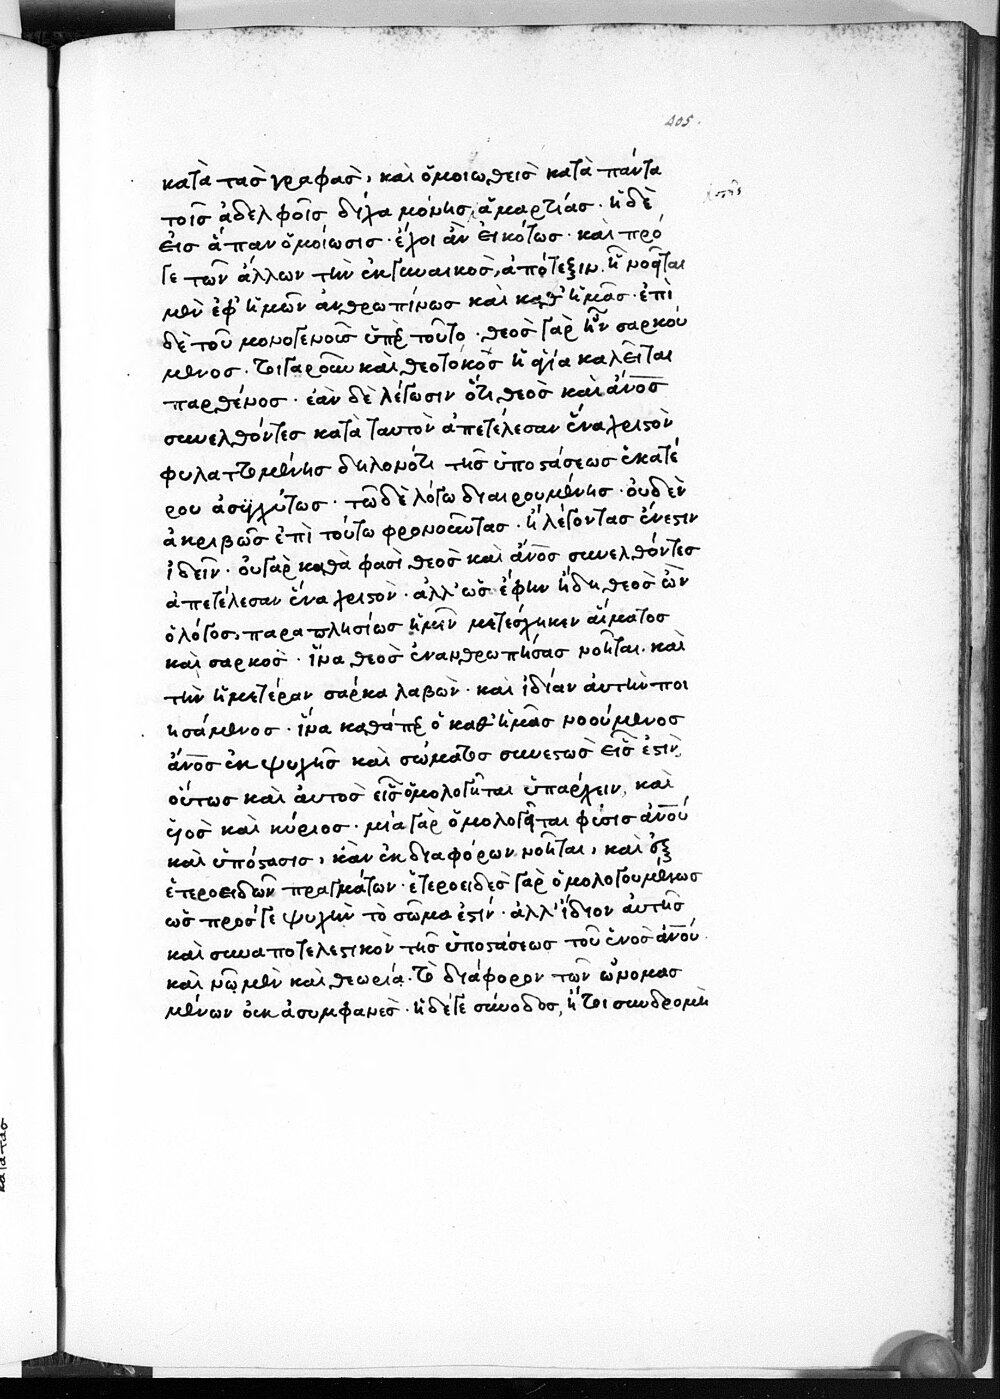 405.
κατὰ τὰσ γραφὰσ, καὶ ὅμοιωθεὶσ κατὰ πάντα
τοῖσ ἀδελφοῖσ δίχα μόνησ ἁμαρτίασ· ἡ δὲ
εἰσ ἅπαν ὁμοίωσισ· ἔχοι ἂν εἰκότωσ· καὶ πρό
γε τῶν ἄλλων τὴν ἐκ γυναικὸσ, ἀπότεξιν. ἣ νοῆται
μὲν ἐφ' ἡμῶν ἀνθρωπίνωσ καὶ καθ' ἡμᾶσ· ἐπὶ
δὲ τοῦ μονογενοῦσ ὑπὲρ τοῦτο· θεὸσ γὰρ ἦν σαρκού
μενοσ· τοιγαροῦν καὶ θεοτόκοσ ἡ ἁγία καλεῖται
παρθένοσ· ἐὰν δὲ λέγωσιν ὅτι θεὸσ καὶ ἄνοσ
συνελθόντεσ κατὰ ταυτὸν ἀπετέλεσαν ἕνα χριστὸν
φυλαττομένησ δηλονότι τῆσ ὑποστάσεωσ ἑκατέ
ρου ἀσυγχύτωσ· τῶ δὲ λόγω διαιρουμένησ· οὐδὲν
ἀκριβῶσ ἐπὶ τούτω φρονοῦντασ· ἢ λέγοντασ ἔνεστιν
ἰδεῖν· οὐ γὰρ καθὰ φασὶ θεὸσ καὶ ἄνοσ συνελθόντεσ
ἀπετέλεσαν ἕνα χριστὸν· ἀλλ' ὡσ ἔφην ἤδη θεὸσ ὢν
ὁ λόγοσ, παραπλησίωσ ἡμῖν μετέσχηκεν αἵματοσ
καὶ σαρκὸσ· ἵνα θεὸσ ἐνανθρωπήσασ νοῆται· καὶ
τὴν ἡμετέραν σάρκα λαβὼν· καὶ ἰδίαν αὐτὴν ποι
ησάμενοσ· ἵνα καθάπερ ὁ καθ' ἡμᾶσ νοούμενοσ
ἄνοσ ἐκ ψυχῆσ καὶ σώματοσ συνεστὼσ εἷσ ἐστὶν,
οὕτωσ καὶ αὐτὸσ εἷσ ὁμολογῆται ὑπάρχειν, καὶ
υἱὸσ καὶ κύριοσ· μία γὰρ ὁμολογῆται φύσισ ἀνού
καὶ ὑπόστασισ, κἂν ἐκ διαφόρων νοῆται, καὶ ἐξ
ἑτεροειδῶν πραγμάτων· ἑτεροειδὲσ γὰρ ὁμολογουμένωσ
ὡσ πρόσγε ψυχὴν τὸ σῶμα ἐστίν· ἀλλ' ἴδιον αὐτῆσ
καὶ συναποτελεστικὸν τῆσ ὑποστάσεωσ τοῦ ἑνὸσ ἀνού.
καὶ νῶ μὲν καὶ θεωρία· τὸ διάφορον τῶν ὠνομασ
μένων οὐκ ἀσυμφανὲσ· ἡ δέγε σύνοδοσ, ἤτοι συνδρομὴ
κατὰ τὰσ